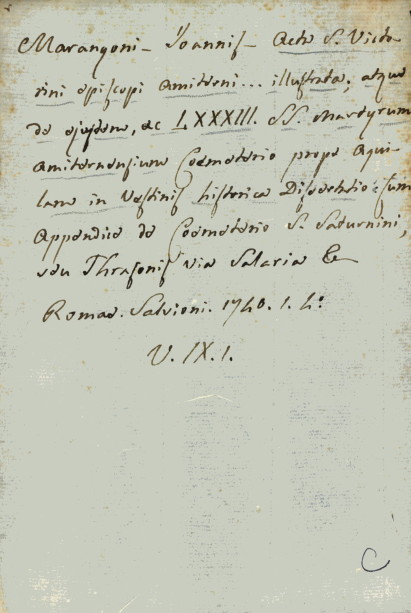 Marangoni - Joannis - Acta S. Victo-
rini episcopi Amiterni... illustrata, atque
de ejusdem, ac LXXXIII. SS. Martyrum
Amiternensium Coemeterio prope Aqui-
lam in Vestinis historica Dissertatio cum
Appendice de Coemeterio S. Saturnini,
seu Thrasonis via Salaria &
Romae. Salvioni. 1740. 1. 4°
V. IX. 1.
C